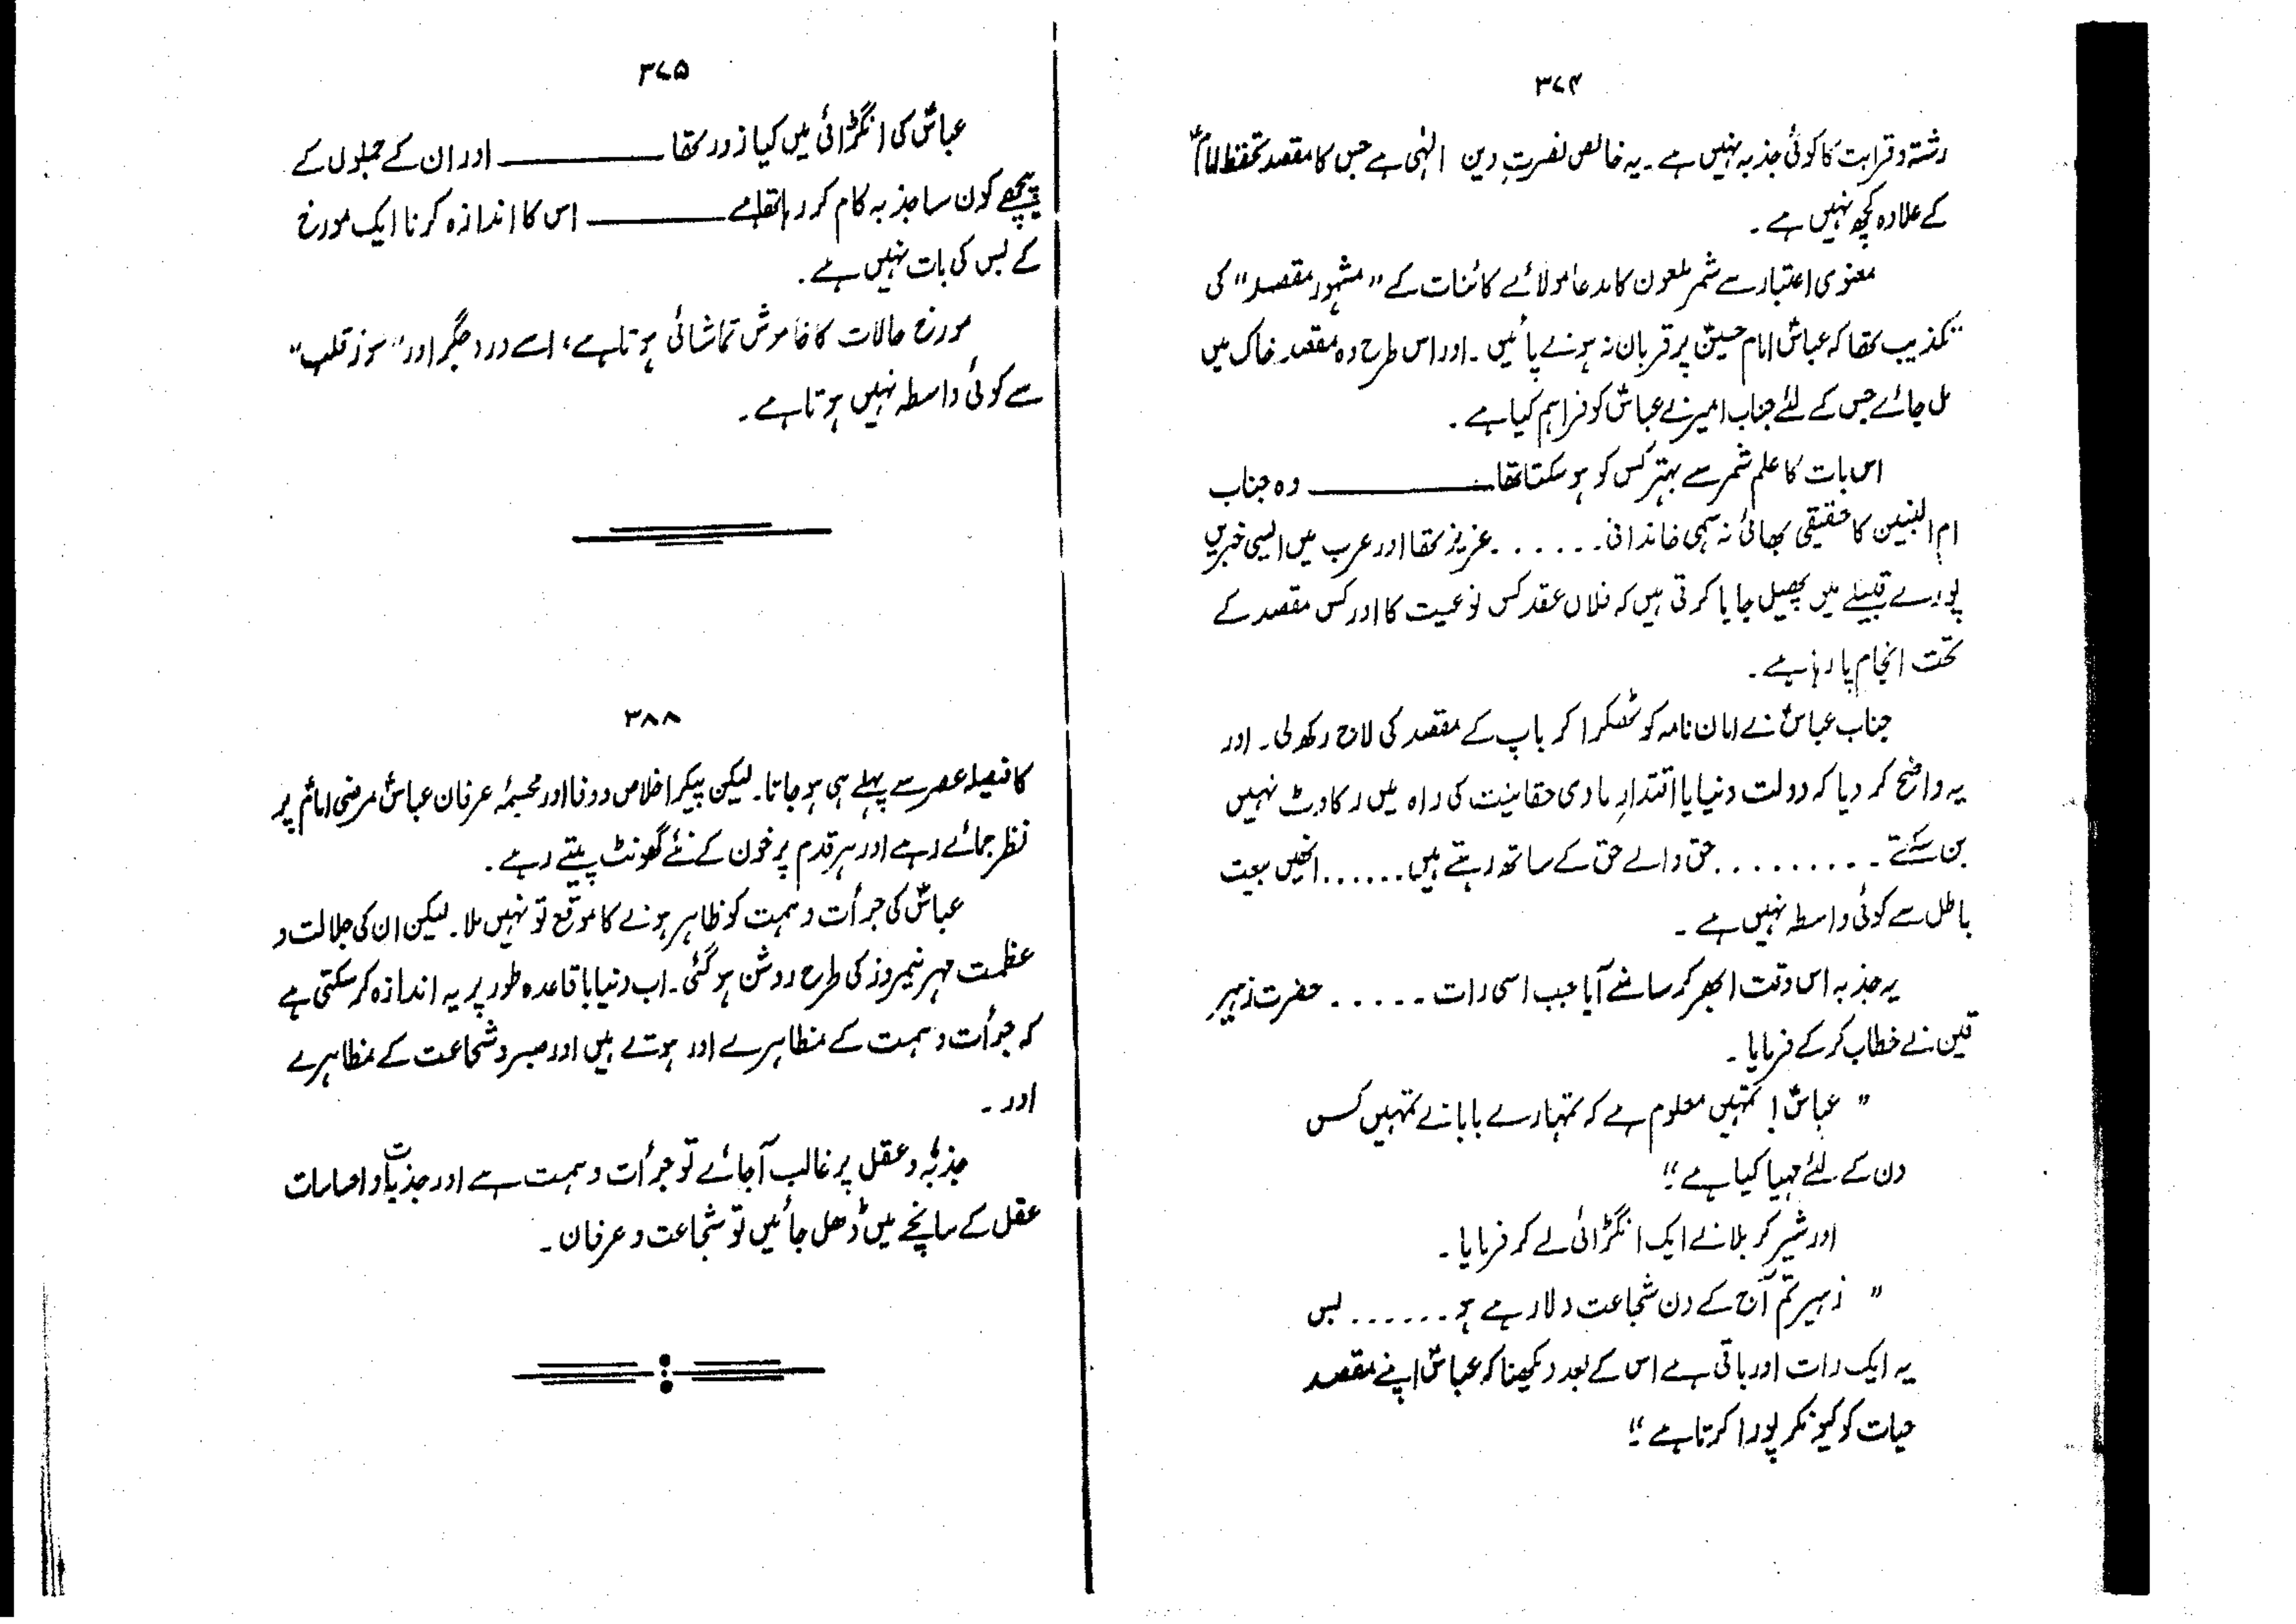 ۳۷۴
رشتہ و قرابت کا کوئی جذبہ نہیں ہے۔ یہ خالص نصرتِ دین الٰہی ہے جس کا مقصد تحفظ امامؑ
کے علاوہ کچھ نہیں ہے۔
معنوی اعتبار سے شمر ملعون کا مدعا مولائے کائنات کے "مشہور مقصد" کی
تکذیب تھا کہ عباسؑ امام حسینؑ پر قربان نہ ہونے پائیں۔ اور اس طرح وہ مقصد خاک میں
مل جائے جس کے لئے جناب امیرؑ نے عباسؑ کو فراہم کیا ہے۔
اس بات کا علم شمر سے بہتر کس کو ہو سکتا تھا ــــــــــــ وہ جناب
ام البنین کا حقیقی بھائی نہ سہی خاندانی ۔۔۔۔۔۔ عزیز تھا اور عرب میں ایسی خبریں
پورے قبیلے میں پھیل جایا کرتی ہیں کہ فلاں عقد کس نوعیت کا اور کس مقصد کے
تحت انجام پا رہا ہے۔
جناب عباسؑ نے امان نامہ کو ٹھکرا کر باپ کے مقصد کی لاج رکھ لی۔ اور
یہ واضح کر دیا کہ دولت دنیا یا اقتدارِ مادی حقانیت کی راہ میں رکاوٹ نہیں
بن سکتے ۔۔۔۔۔۔۔۔۔ حق والے حق کے ساتھ رہتے ہیں ۔۔۔۔۔۔ انھیں بیعت
باطل سے کوئی واسطہ نہیں ہے۔
یہ جذبہ اس وقت ابھر کر سامنے آیا جب اسی رات ۔۔۔۔۔ حضرت زہیر
قین نے خطاب کر کے فرمایا۔
"عباسؑ! تمہیں معلوم ہے کہ تمہارے بابا نے تمہیں کس
دن کے لئے مہیا کیا ہے"؟
اور شیر کربلا نے ایک انگڑائی لے کر فرمایا۔
"زہیر تم آج کے دن شجاعت دلا رہے ہو ۔۔۔۔۔۔ بس
یہ ایک رات اور باقی ہے اس کے بعد دیکھنا کہ عباسؑ اپنے مقصد
حیات کو کیونکر پورا کرتا ہے"؟
۳۷۵
عباسؑ کی انگڑائی میں کیا زور تھا ــــــــــــ اور ان کے جملوں کے
پیچھے کون سا جذبہ کام کر رہا تھا ہے ــــــــــــ اس کا اندازہ کرنا ایک مورخ
کے بس کی بات نہیں ہے۔
مورخ حالات کا خاموش تماشائی ہوتا ہے، اسے درد جگر اور "سوز قلب"
سے کوئی واسطہ نہیں ہوتا ہے۔
۳۸۸
کا فیصلہ عصر سے پہلے ہی ہو جاتا۔ لیکن پیکر اخلاص و وفا اور مجسمۂ عرفان عباسؑ مرضی امامؑ پر
نظر جمائے رہے اور ہر قدم پر خون کے نئے گھونٹ پیتے رہے۔
عباسؑ کی جرأت و ہمت کو ظاہر ہونے کا موقع تو نہیں ملا۔ لیکن ان کی جلالت و
عظمت مہر نیمروز کی طرح روشن ہو گئی۔ اب دنیا باقاعدہ طور پر یہ اندازہ کر سکتی ہے
کہ جرأت و ہمت کے مظاہرے اور ہوتے ہیں اور صبر و شجاعت کے مظاہرے
اور۔
جذبۂ و عقل پر غالب آ جائے تو جرأت و ہمت ہے اور جذبات و احساسات
عقل کے سانچے میں ڈھل جائیں تو شجاعت و عرفان۔